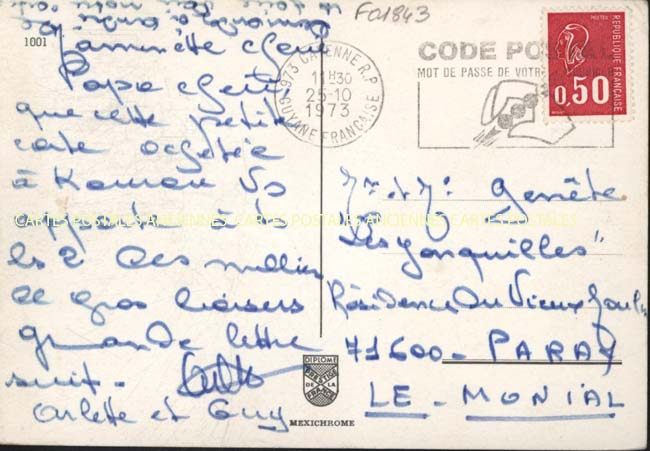 F01843
1001
Maminette chérie
Papa chéri
que cette petite
carte achetée
à Kamon Vs
apporte à
les 2 des milliers
de gros baisers
grande lettre
suit.
Arlette et Guy
973 CAYENNE R.P.
11H30
25-10
1973
GUYANE FRANÇAISE
CODE POSTAL
MOT DE PASSE DE VOTRE
POSTES
REPUBLIQUE FRANÇAISE
0,50
CARTES POSTALES ANCIENNES CARTES POSTALES ANCIENNES CARTES POSTALES
Mr et Me Genête
"Les Jonquilles"
Résidence Du Vieux Moulin
71600 - PARAY
LE - MONIAL
DIPLOME
PRESTIGE
DE LA
FRANCE
MEXICHROME